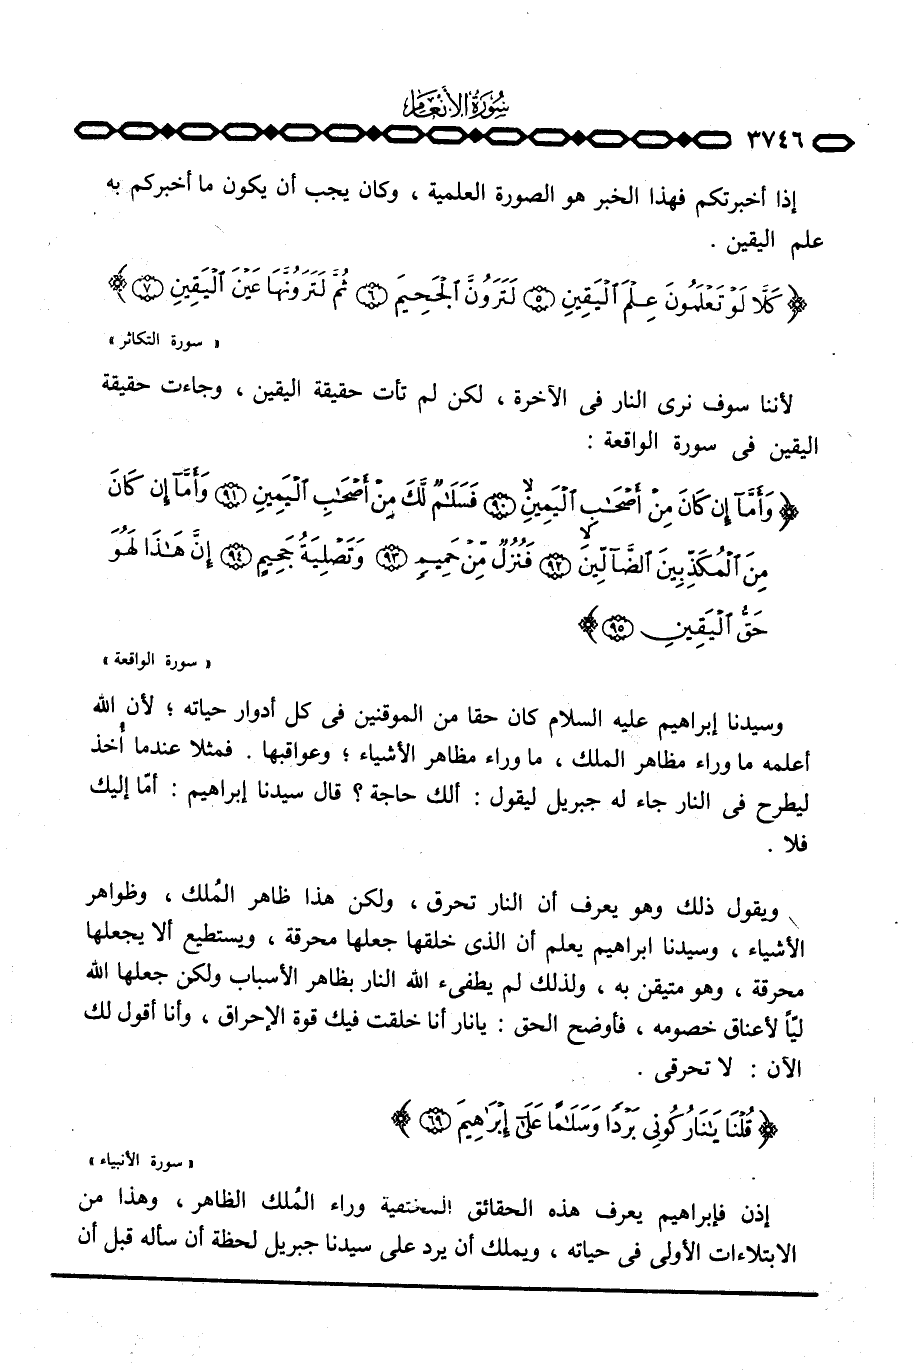 سورة الأنعام
٣٧٤٦
إذا أخبرتكم فهذا الخبر هو الصورة العلمية ، وكان يجب أن يكون ما أخبركم به
علم اليقين .
﴿ كَلَّا لَوْ تَعْلَمُونَ عِلْمَ الْيَقِينِ ﴿٥﴾ لَتَرَوُنَّ الْجَحِيمَ ﴿٦﴾ ثُمَّ لَتَرَوُنَّهَا عَيْنَ الْيَقِينِ ﴿٧﴾ ﴾
« سورة التكاثر »
لأننا سوف نرى النار فى الآخرة ، لكن لم تأت حقيقة اليقين ، وجاءت حقيقة
اليقين فى سورة الواقعة :
﴿ وَأَمَّآ إِن كَانَ مِنْ أَصْحَٰبِ الْيَمِينِ ﴿٩٠﴾ فَسَلَٰمٌ لَّكَ مِنْ أَصْحَٰبِ الْيَمِينِ ﴿٩١﴾ وَأَمَّآ إِن كَانَ
مِنَ الْمُكَذِّبِينَ الضَّآلِّينَ ﴿٩٢﴾ فَنُزُلٌ مِّنْ حَمِيمٍ ﴿٩٣﴾ وَتَصْلِيَةُ جَحِيمٍ ﴿٩٤﴾ إِنَّ هَٰذَا لَهُوَ
حَقُّ الْيَقِينِ ﴿٩٥﴾ ﴾
« سورة الواقعة »
وسيدنا إبراهيم عليه السلام كان حقا من الموقنين فى كل أدوار حياته ؛ لأن الله
أعلمه ما وراء مظاهر الملك ، ما وراء مظاهر الأشياء ؛ وعواقبها . فمثلا عندما أُخذ
ليطرح فى النار جاء له جبريل ليقول : ألك حاجة ؟ قال سيدنا إبراهيم : أمّا إليك
فلا .
ويقول ذلك وهو يعرف أن النار تحرق ، ولكن هذا ظاهر المُلك ، وظواهر
الأشياء ، وسيدنا ابراهيم يعلم أن الذى خلقها جعلها محرقة ، ويستطيع ألا يجعلها
محرقة ، وهو متيقن به ، ولذلك لم يطفىء الله النار بظاهر الأسباب ولكن جعلها الله
ليّاً لأعناق خصومه ، فأوضح الحق : يانار أنا خلقت فيك قوة الإحراق ، وأنا أقول لك
الآن : لا تحرقى .
﴿ قُلْنَا يَٰنَارُ كُونِى بَرْدًا وَسَلَٰمًا عَلَىٰٓ إِبْرَٰهِيمَ ﴿٦٩﴾ ﴾
« سورة الأنبياء »
إذن فإبراهيم يعرف هذه الحقائق المختفية وراء المُلك الظاهر ، وهذا من
الابتلاءات الأولى فى حياته ، ويملك أن يرد على سيدنا جبريل لحظة أن سأله قبل أن